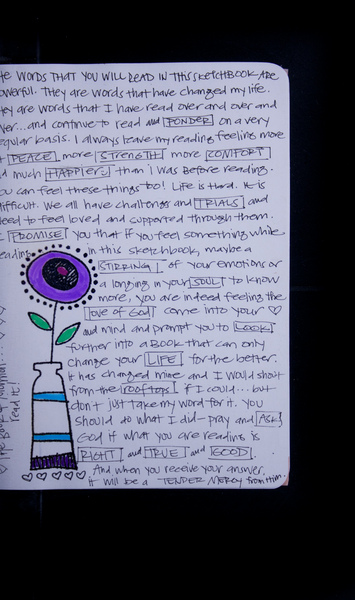 THE WORDS THAT YOU WILL READ IN THIS SKETCHBOOK ARE
powerful. They are words that have changed my life.
They are words that I have read over and over and
over...and continue to read and PONDER on a very
regular basis. I always leave my reading feeling more
PEACE, more STRENGTH more COMFORT
and much HAPPIER :) than I was before reading.
You can feel these things too! Life is hard. It is
difficult. We all have challenges and TRIALS and
need to feel loved and supported through them.
I PROMISE you that if you feel something while
reading in this sketchbook, maybe a
STIRRING of your emotions or
a longing in your SOUL to know
more, you are indeed feeling the
love of GOD come into your ♡
and mind and prompt you to LOOK
further into a BOOK that can only
change your LIFE for the better.
It has changed mine and I would shout
from the rooftops if I could... but
don't just take my word for it. You
should do what I did—pray and ASK
God if what you are reading is
RIGHT and TRUE and GOOD.
And when you receive your answer,
it will be a TENDER MERCY from Him.
The Book of Mormon...
read it!